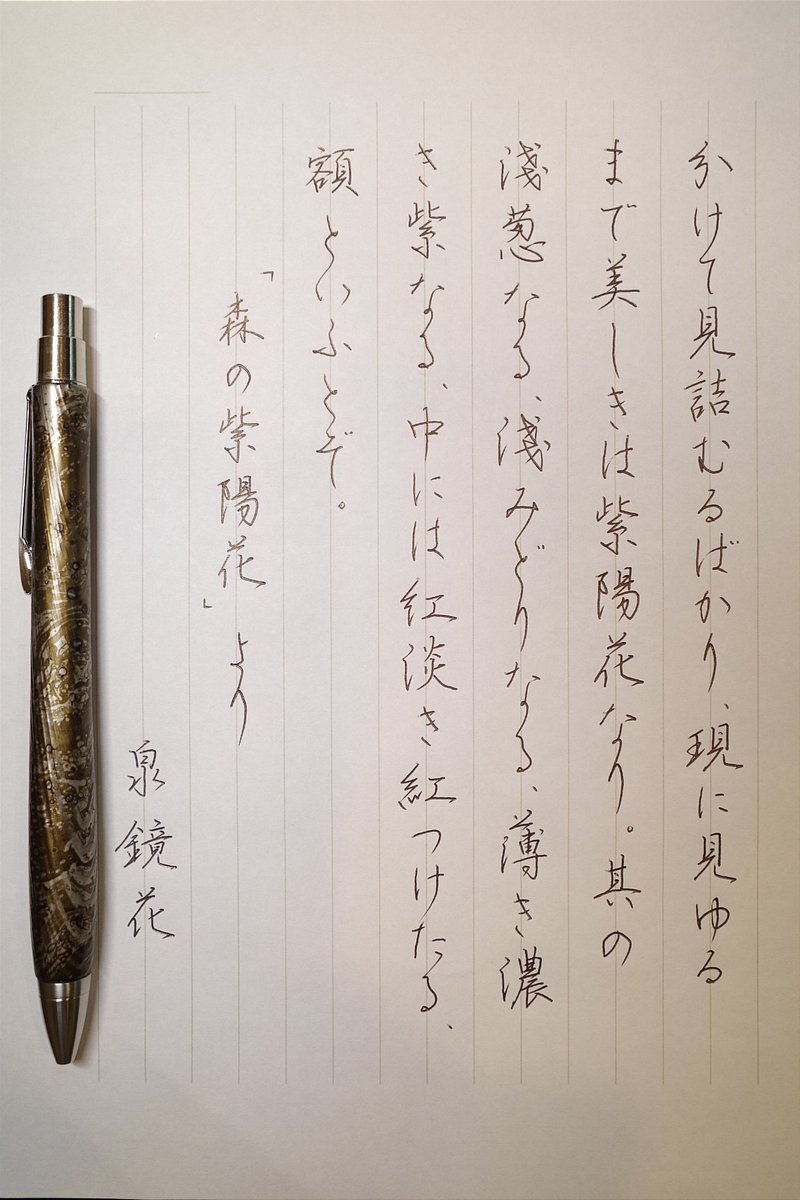 分けて見詰むるばかり、現に見ゆる
まで美しきは紫陽花なり。其の
淺葱なる、淺みどりなる、薄き濃
き紫なる、中には紅淡き紅つけたる、
額といふとぞ。
「森の紫陽花」より
泉鏡花